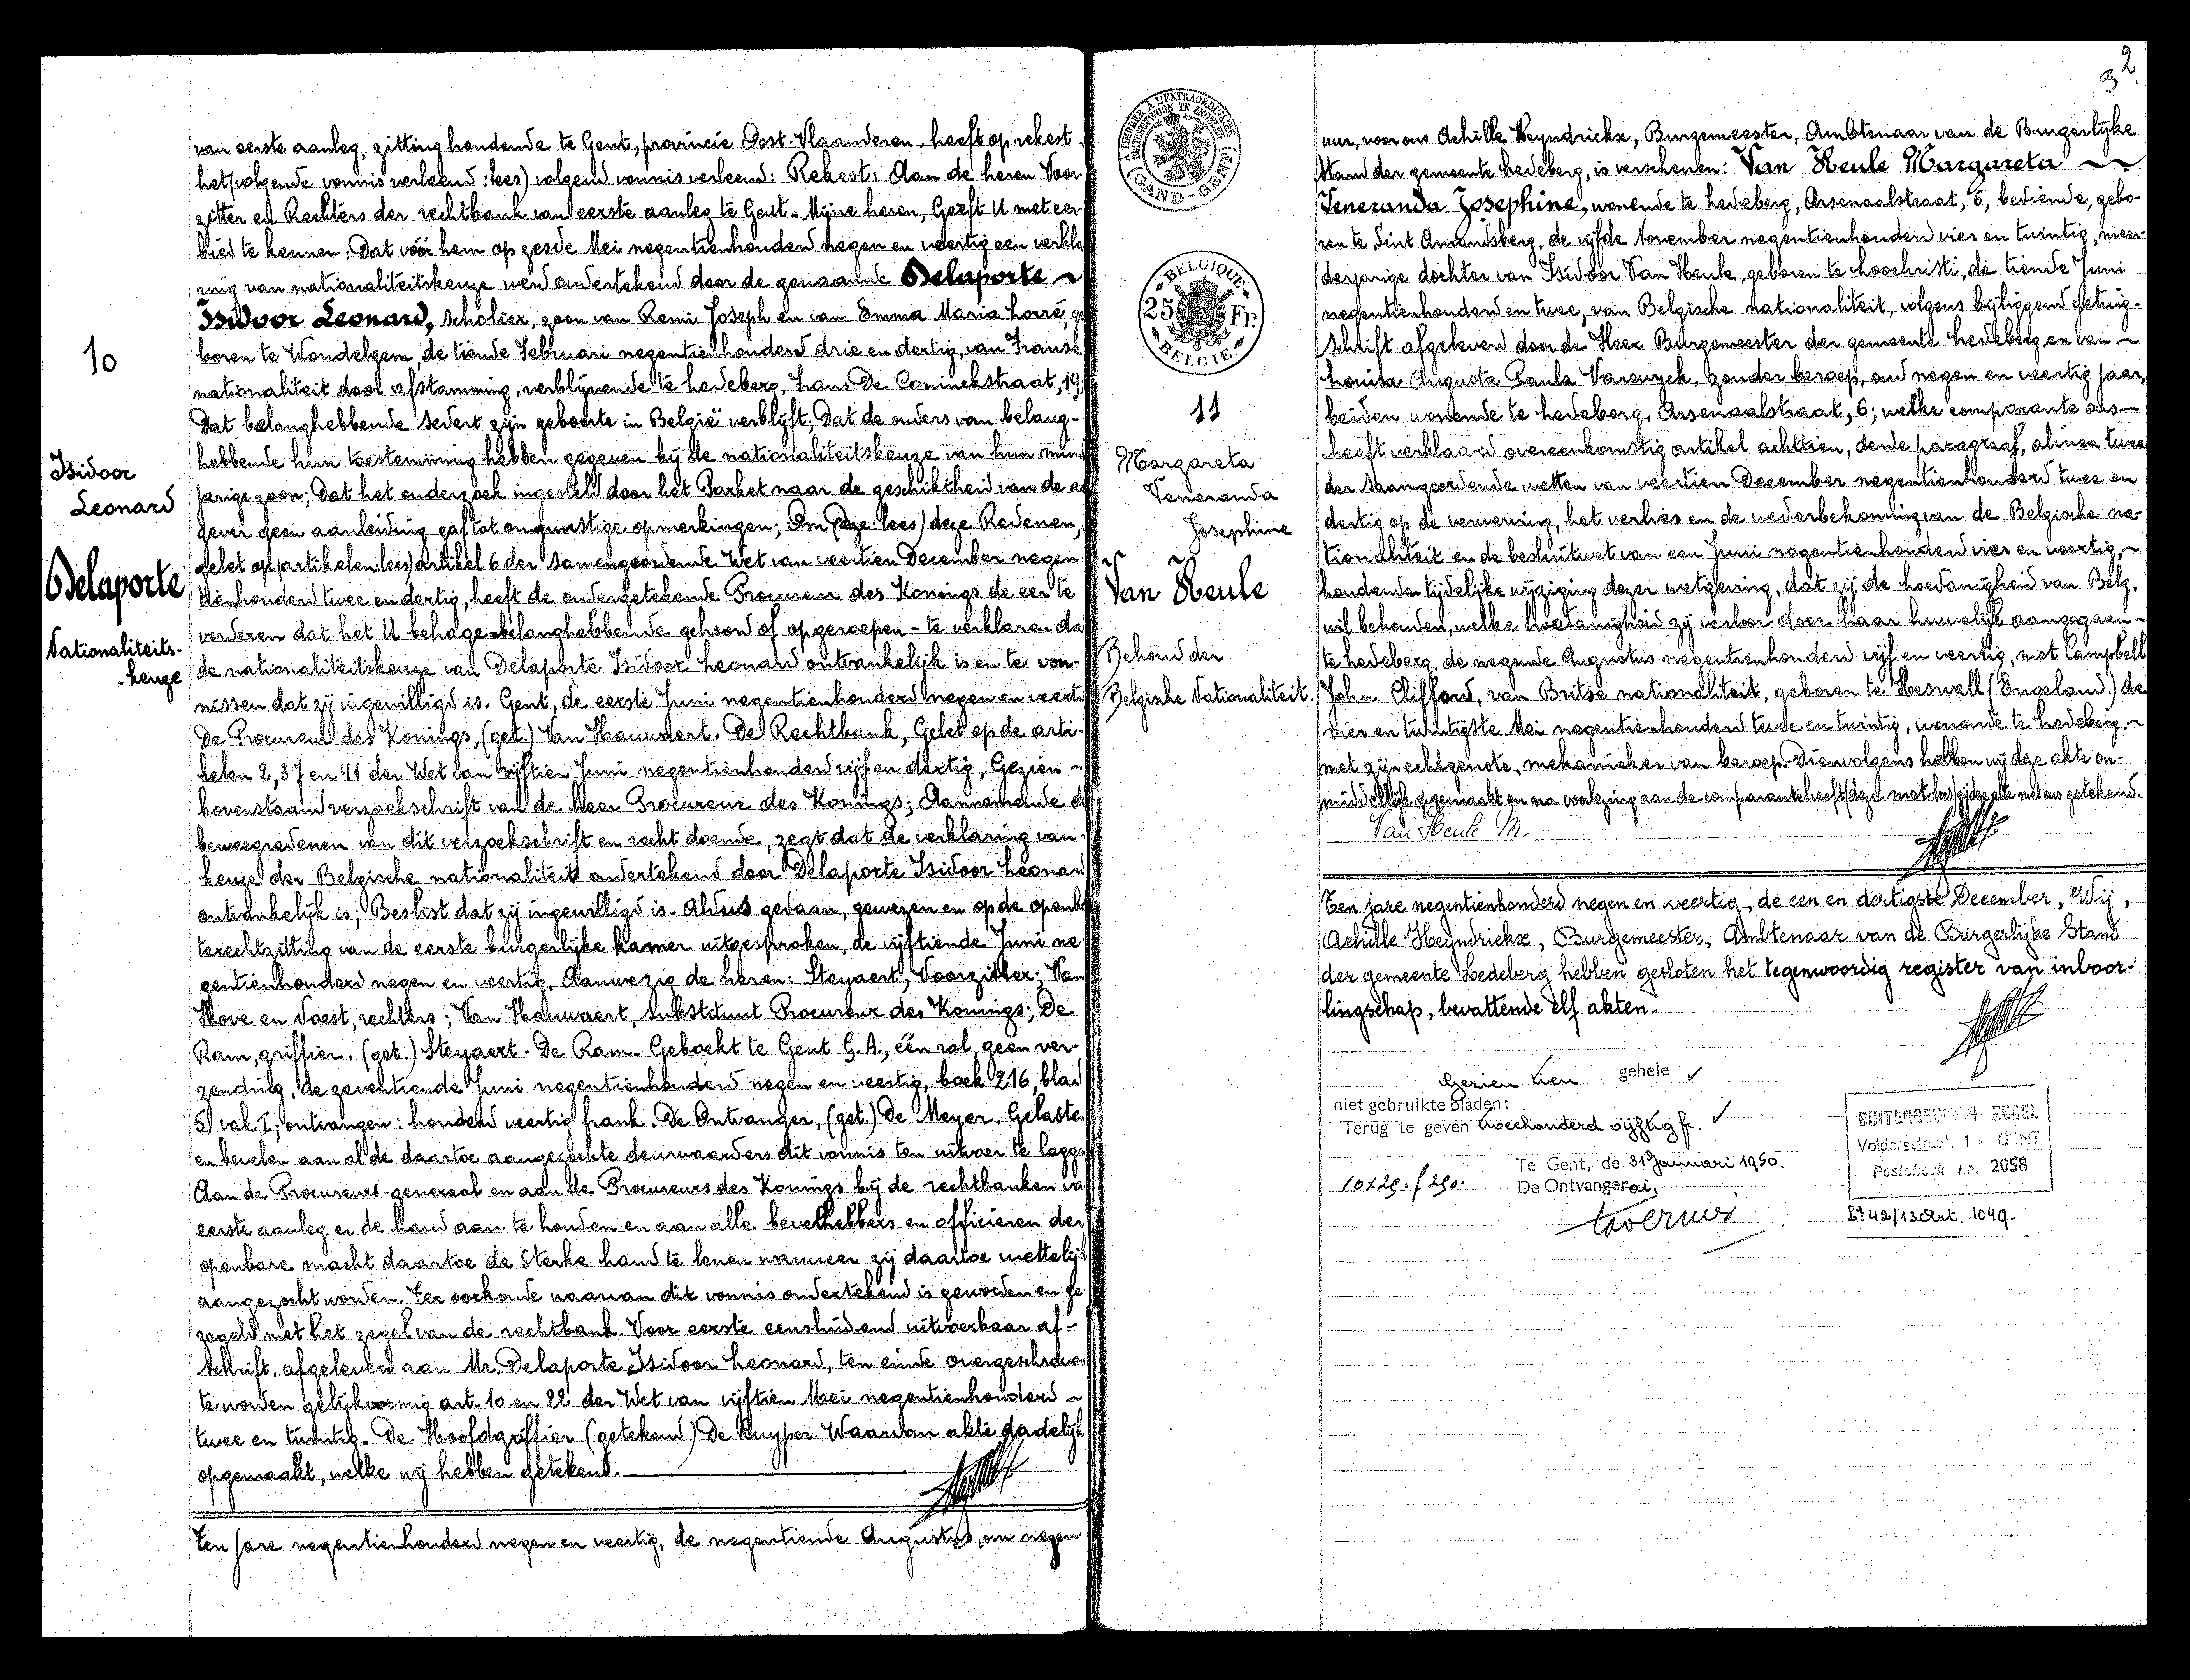 10
Isidoor
Leonard
Delaporte
Nationaliteits-
-keuze
van eerste aanleg, zitting houdende te Gent, provincie Oost-Vlaanderen, heeft op rekest
het (volgende vonnis verleend: lees) volgend vonnis verleend: Rekest: Aan de heren Voor-
zitter en Rechters der rechtbank van eerste aanleg te Gent. Mijne heren, Geeft U met eer-
bied te kennen: Dat vóór hem op zesde Mei negentienhonderd negen en veertig een verkla
ring van nationaliteitskeuze werd ondertekend door de genaamde Delaporte ~
Isidoor Leonard, scholier, zoon van Remi Joseph en van Emma Maria Lorré, ge
boren te Wondelgem, de tiende Februari negentienhonderd drie en dertig, van Franse
nationaliteit door afstamming, verblijvende te Ledeberg, Frans De Coninckstraat, 19;
Dat belanghebbende sedert zijn geboorte in België verblijft; Dat de ouders van belang-
hebbende hun toestemming hebben gegeven bij de nationaliteitskeuze van hun min
jarige zoon; Dat het onderzoek ingesteld door het Parket naar de geschiktheid van de aan
gever geen aanleiding gaf tot ongunstige opmerkingen; Om (deze: lees) deze Redenen,
gelet op (artikelen: lees) artikel 6 der samengeordende Wet van veertien December negen-
tienhonderd twee en dertig, heeft de ondergetekende Procureur des Konings de eer te
vorderen dat het U behage - belanghebbende gehoord of opgeroepen - te verklaren da
de nationaliteitskeuze van Delaporte Isidoor Leonard ontvankelijk is en te von-
nissen dat zij ingewilligd is. Gent, de eerste Juni negentienhonderd negen en veerti
De Procureur des Konings, (get.) Van Hauwaert. De Rechtbank, Gelet op de arti-
kelen 2, 37 en 41 der Wet van vijftien Juni negentienhonderd vijf en dertig, Gezien ~
bovenstaand verzoekschrift van de Heer Procureur des Konings; Aannemende de
beweegredenen van dit verzoekschrift en recht doende, zegt dat de verklaring van
keuze der Belgische nationaliteit ondertekend door Delaporte Isidoor Leonard
ontvankelijk is; Beslist dat zij ingewilligd is. Aldus gedaan, gewezen en op de openba
terechtzitting van de eerste burgerlijke kamer uitgesproken, de vijftiende Juni ne
gentienhonderd negen en veertig. Aanwezig de heren: Steyaert, Voorzitter; Van
Hove en Voest, rechters; Van Hauwaert, Substituut Procureur des Konings; De
Ram, griffier. (get.) Steyaert. De Ram. Geboekt te Gent G. A., één rol, geen ver-
zending, de zeventiende Juni negentienhonderd negen en veertig, boek 216, blad
5) vak I; ontvangen: honderd veertig frank. De Ontvanger, (get.) De Meyer. Gelaste
en bevelen aan al de daartoe aangezochte deurwaarders dit vonnis ten uitvoer te legge
Aan de Procureurs-generaal en aan de Procureurs des Konings bij de rechtbanken va
eerste aanleg er de hand aan te houden en aan alle bevelhebbers en officieren der
openbare macht daartoe de sterke hand te lenen wanneer zij daartoe wettelijk
aangezocht worden. Ter oorkonde waarvan dit vonnis ondertekend is geworden en ge-
zegeld met het zegel van de rechtbank. Voor eerste eensluidend uitvoerbaar af-
schrift, afgeleverd aan Mr. Delaporte Isidoor Leonard, ten einde overgeschreven
te worden gelijkvormig art. 10 en 22 der Wet van vijftien Mei negentienhonderd ~
twee en twintig. De Hoofdgriffier (getekend) De Kuyper. Waarvan akte dadelijk
opgemaakt, welke wij hebben getekend.
Ten jare negentienhonderd negen en veertig, de negentiende Augustus, om negen
2
A TIMBRER A L'EXTRAORDINAIRE
BUITENGEWOON TE ZEGELEN
(GAND-GENT)
BELGIQUE
25 Fr.
BELGIE
11
Margareta
Veneranda
Josephine
Van Heule
Behoud der
Belgische Nationaliteit.
uur, voor ons Achille Heyndrickx, Burgemeester, Ambtenaar van de Burgerlijke
Stand der gemeente Ledeberg, is verschenen: Van Heule Margareta ~
Veneranda Josephine, wonende te Ledeberg, Arsenaalstraat, 6, bediende, gebo-
ren te Sint Amandsberg, de vijfde November negentienhonderd vier en twintig, meer-
derjarige dochter van Isidoor Van Heule, geboren te Loochristi, de tiende Juni
negentienhonderd en twee, van Belgische nationaliteit, volgens bijliggend getuig-
schrift afgeleverd door de Heer Burgemeester der gemeente Ledeberg en van ~
Louisa Augusta Paula Varewyck, zonder beroep, oud negen en veertig jaar,
beiden wonende te Ledeberg, Arsenaalstraat, 6; welke comparante ons ~
heeft verklaard overeenkomstig artikel achttien, derde paragraaf, alinea twee
der saamgeordende wetten van veertien December negentienhonderd twee en
dertig op de verwerving, het verlies en de wederbekoming van de Belgische na-
tionaliteit en de besluitwet van een Juni negentienhonderd vier en veertig, ~
houdende tijdelijke wijziging dezer wetgeving, dat zij de hoedanigheid van Belg
wil behouden, welke hoedanigheid zij verloor door haar huwelijk aangegaan ~
te Ledeberg, de negende Augustus negentienhonderd vijf en veertig, met Campbell
John Clifford, van Britse nationaliteit, geboren te Heswall (Engeland) de
vier en twintigste Mei negentienhonderd twee en twintig, wonende te Ledeberg ~
met zijn echtgenote, mekanieker van beroep. Dienvolgens hebben wij deze akte on-
middellijk opgemaakt en na voorlezing aan de comparante heeft (deze met lees) zij deze akte met ons getekend.
Van Heule M.
Ten jare negentienhonderd negen en veertig, de een en dertigste December, Wij,
Achille Heyndrickx, Burgemeester, Ambtenaar van de Burgerlijke Stand
der gemeente Ledeberg hebben gesloten het tegenwoordig register van inboor-
lingschap, bevattende elf akten.
Gezien tien gehele
niet gebruikte bladen:
Terug te geven tweehonderd vijftig fr.
Te Gent, de 31 Januari 1950.
10 x 25 : f 250.
De Ontvanger ai,
BUITENGEWOON ZEGEL
Voldersstraat, 1 - GENT
Postcheck Nr. 2058
Bt 42/13 Art. 1049.